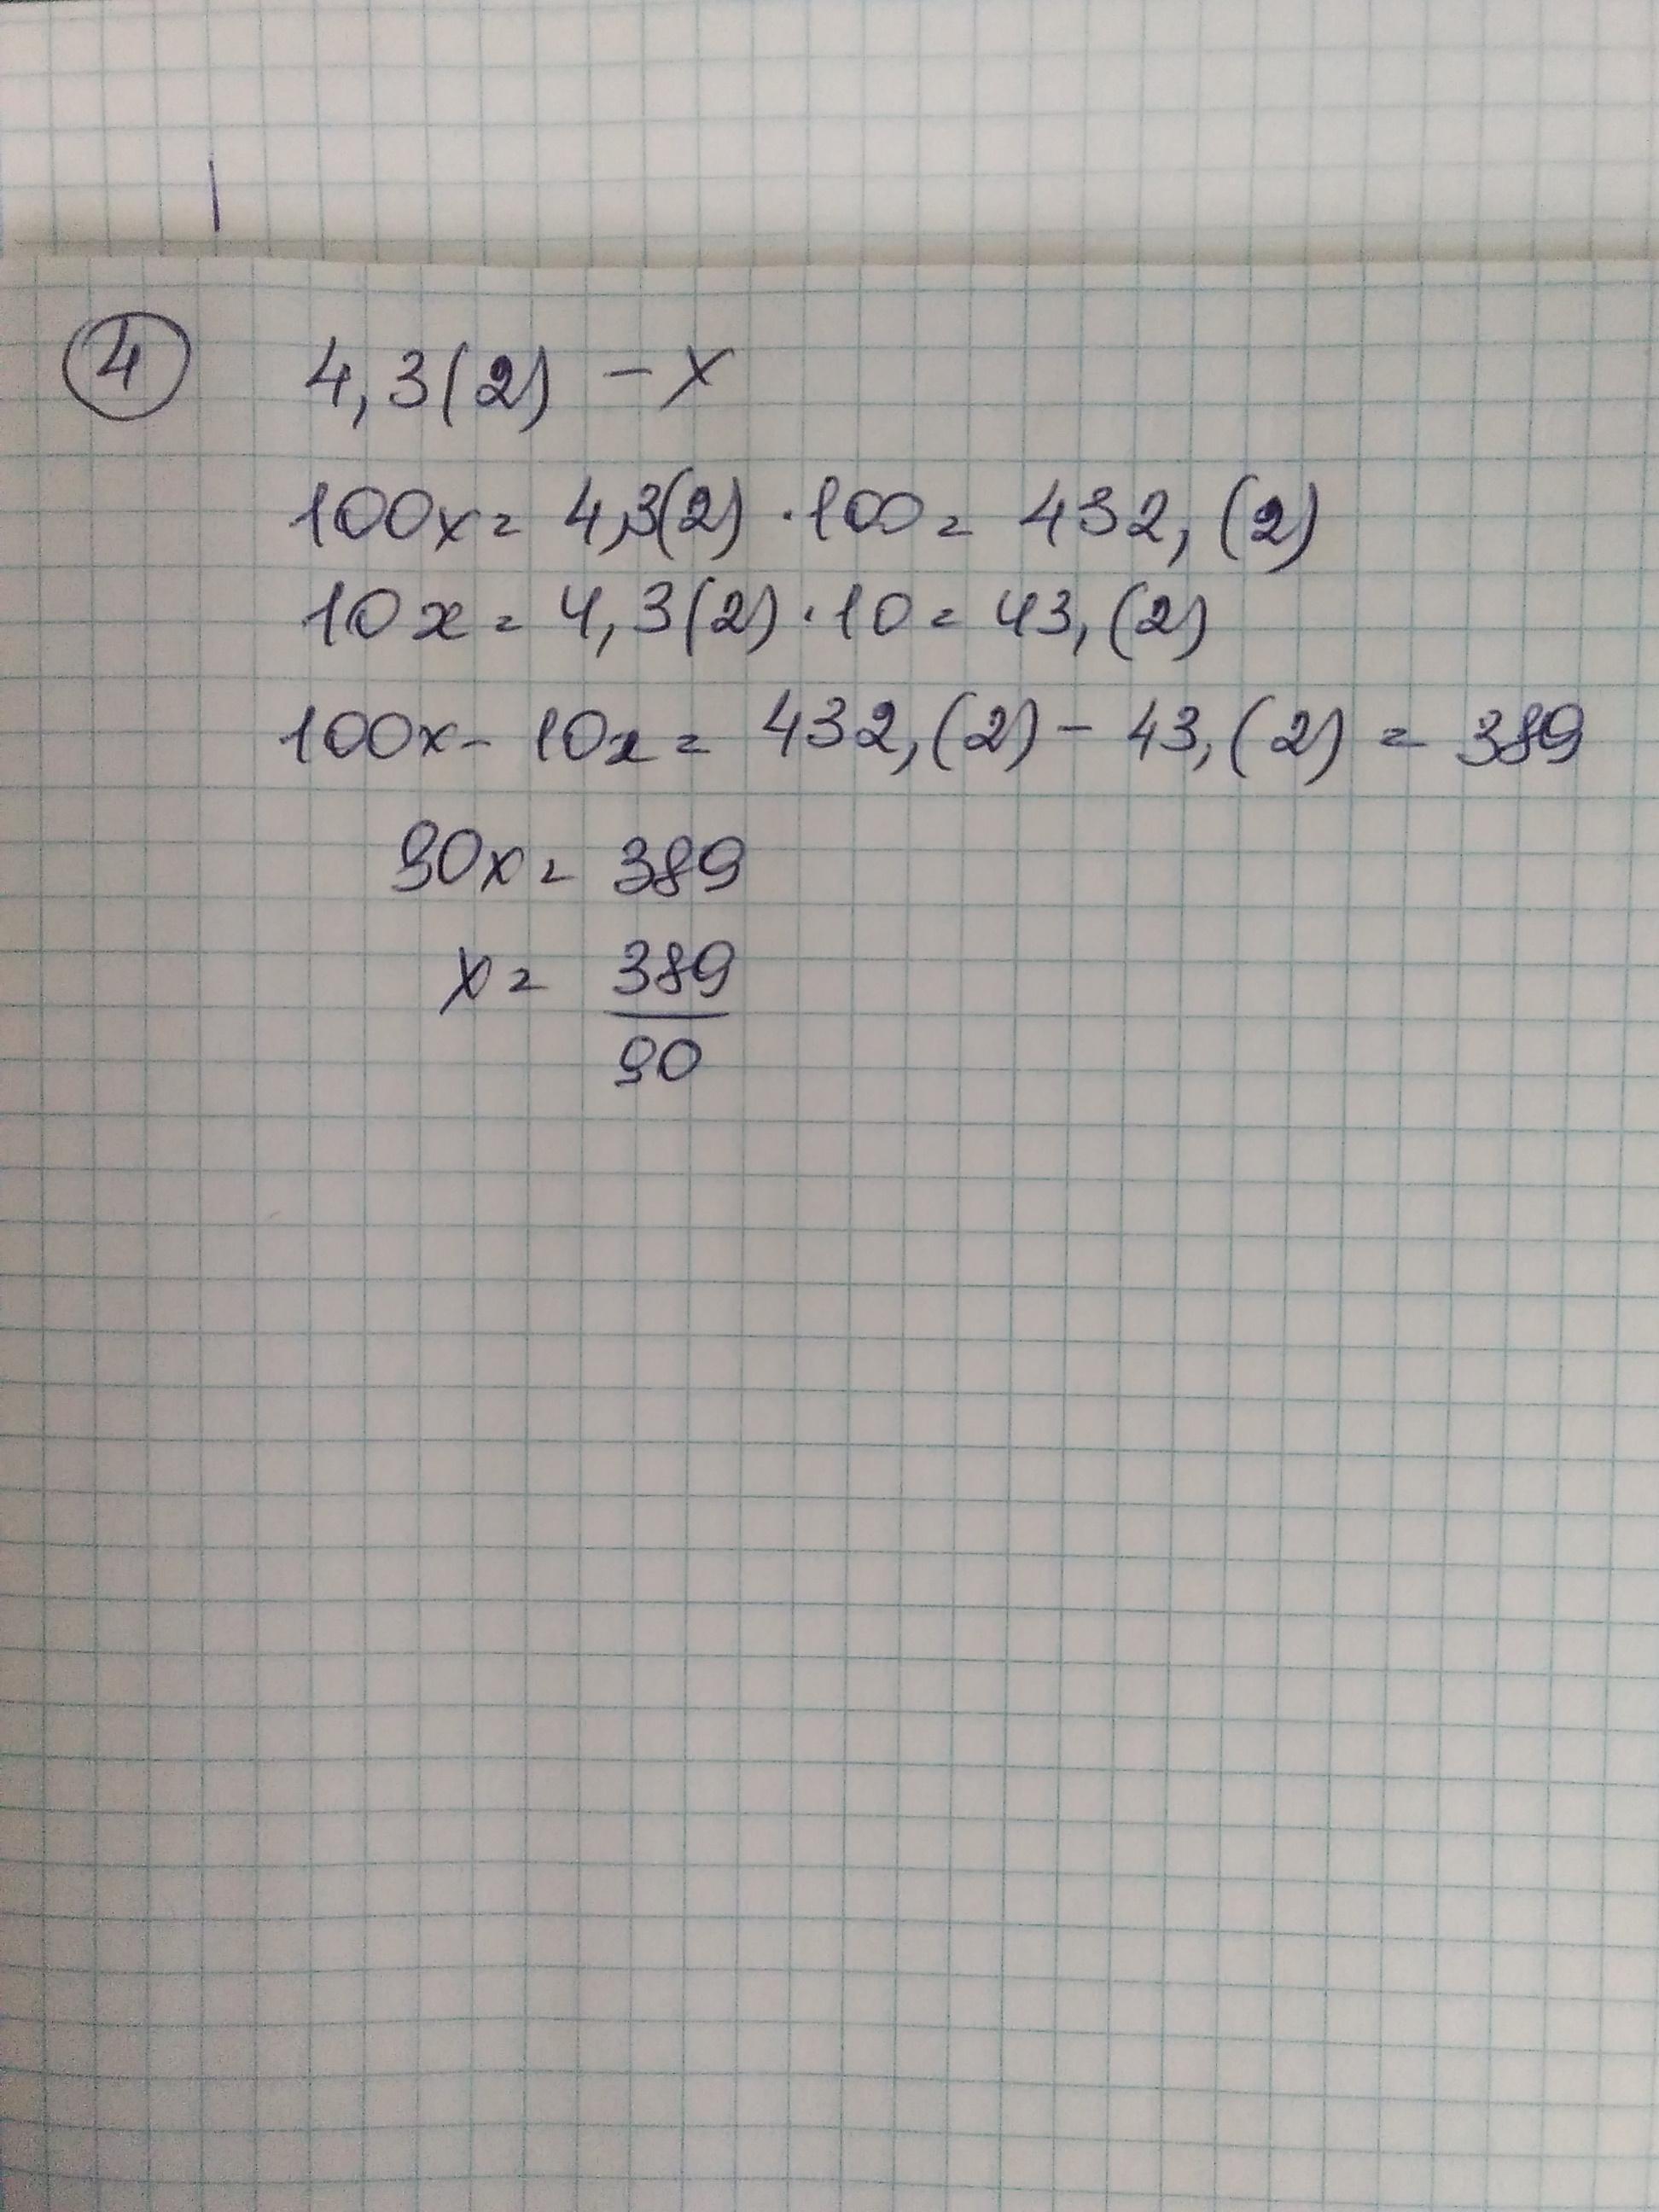 4 4,3(2) – x
100x = 4,3(2) · 100 = 432,(2)
10x = 4,3(2) · 10 = 43,(2)
100x – 10x = 432,(2) – 43,(2) = 389
90x = 389
x = 389
90